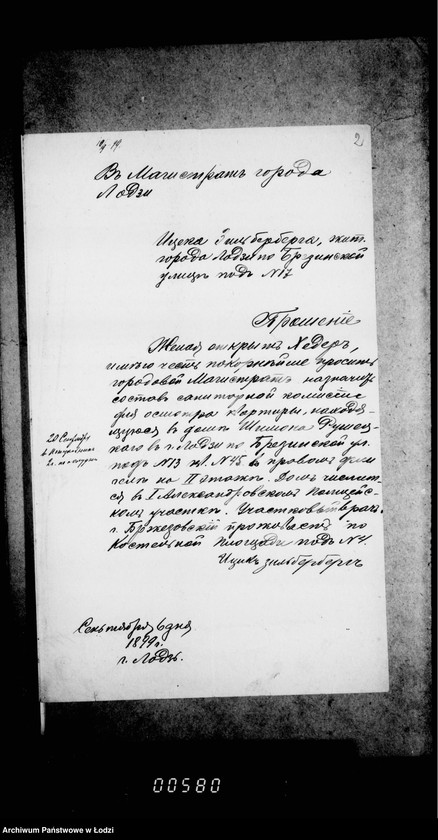 2
Въ Магистратъ города
Лодзи
Ицека Зильберберга, жит.
города Лодзи по Брезинской
улицѣ подъ №17
Прошеніе
Желая открыть Хедеръ,
имѣю честь покорнѣйше просить
городовой Магистратъ назначить
составъ санитарной комисіи
для осмотра квартиры, находя-
щуюся въ домѣ Шимона
въ г. Лодзи по Брезинской ул.
подъ №13 кв. №45 въ правомъ фли
гелѣ на II этажѣ. Домъ числит-
ся въ I Александровскомъ Полицей-
скомъ участкѣ. Участковый врачъ
г. Бржезовскій проживаетъ по
Костельной площади подъ №4.
Ицикъ Зильбербергъ
20 Сентября
Сентября 6 дня
1899 г.
г. Лодзь.
00580
Archiwum Państwowe w Łodzi